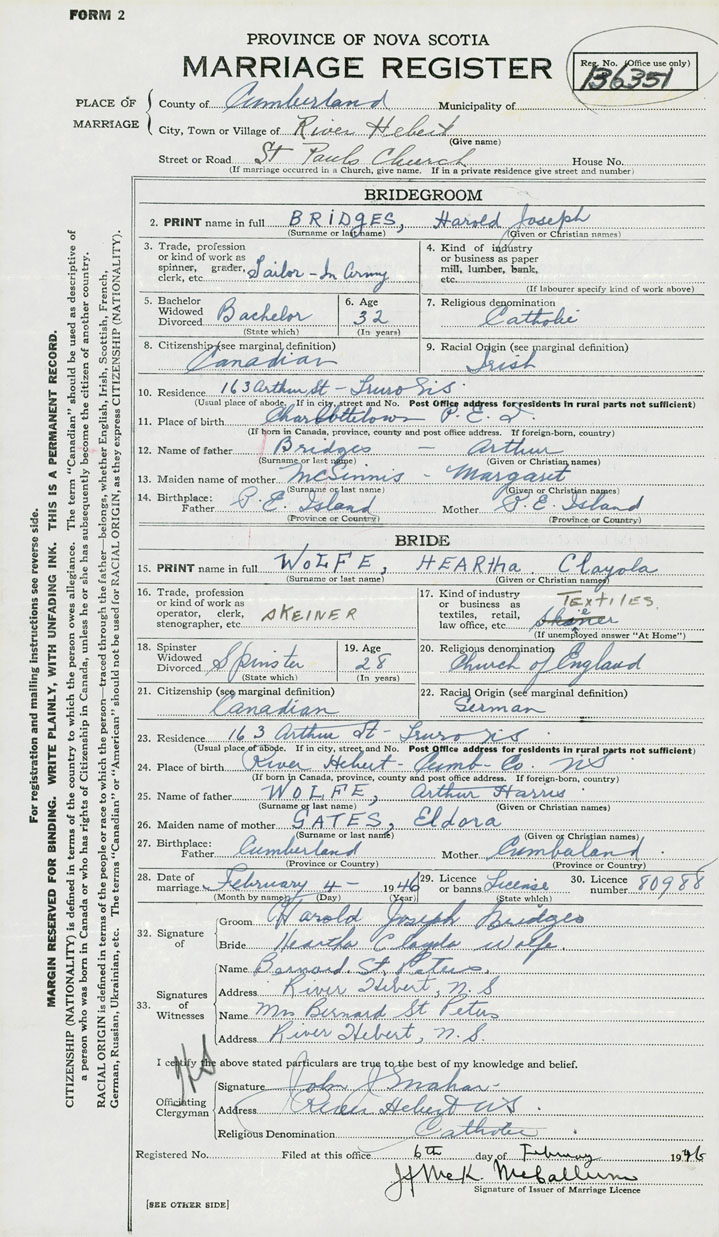 FORM 2
PROVINCE OF NOVA SCOTIA
MARRIAGE REGISTER
Reg. No. (Office use only)
136351
PLACE OF MARRIAGE
County of Cumberland Municipality of
City, Town or Village of River Hebert
(Give name)
Street or Road St Pauls Church House No.
(If marriage occurred in a Church, give name. If in a private residence give street and number)
BRIDEGROOM
2. PRINT name in full BRIDGES, Harold Joseph
(Surname or last name) (Given or Christian names)
3. Trade, profession or kind of work as spinner, grader, clerk, etc. Sailor - In Army
4. Kind of industry or business as paper mill, lumber, bank, etc.
(If labourer specify kind of work above)
5. Bachelor Widowed Divorced Bachelor
(State which)
6. Age 32
(In years)
7. Religious denomination Catholic
8. Citizenship (see marginal definition) Canadian
9. Racial Origin (see marginal definition) Irish
10. Residence 163 Arthur St - Truro NS.
(Usual place of abode. If in city, street and No. Post Office address for residents in rural parts not sufficient)
11. Place of birth Charlottetown P.E.I.
(If born in Canada, province, county and post office address. If foreign-born, country)
12. Name of father Bridges - Arthur
(Surname or last name) (Given or Christian names)
13. Maiden name of mother McInnis - Margaret
(Surname or last name) (Given or Christian names)
14. Birthplace: Father P.E. Island Mother P.E. Island
(Province or Country) (Province or Country)
BRIDE
15. PRINT name in full WOLFE, HEARTHA Clayola
(Surname or last name) (Given or Christian names)
16. Trade, profession or kind of work as operator, clerk, stenographer, etc. SKEINER
17. Kind of industry or business as textiles, retail, law office, etc. TEXTILES.
(If unemployed answer "At Home")
18. Spinster Widowed Divorced Spinster
(State which)
19. Age 28
(In years)
20. Religious denomination Church of England
21. Citizenship (see marginal definition) Canadian
22. Racial Origin (see marginal definition) German
23. Residence 163 Arthur St - Truro NS
(Usual place of abode. If in city, street and No. Post Office address for residents in rural parts not sufficient)
24. Place of birth River Hebert - Cumb- Co. NS
(If born in Canada, province, county and post office address. If foreign-born, country)
25. Name of father WOLFE, Arthur Harris
(Surname or last name) (Given or Christian names)
26. Maiden name of mother GATES, Eldora
(Surname or last name) (Given or Christian names)
27. Birthplace: Father Cumberland Mother Cumbaland
(Province or Country) (Province or Country)
28. Date of marriage February 4 - 1946
(Month by name) (Day) (Year)
29. Licence or banns License
(State which)
30. Licence number 80988
32. Signature of
Groom Harold Joseph Bridges
Bride Heartha Clayola Wolfe.
33. Signatures of Witnesses
Name Bernard St. Peters.
Address River Hebert, N.S
Name Mrs Bernard St Peters
Address River Hebert, N.S.
I certify the above stated particulars are true to the best of my knowledge and belief.
Officiating Clergyman
Signature John J
Address River Hebert NS
Religious Denomination Catholic
Registered No. Filed at this office 6th day of February 1946
McCallum
Signature of Issuer of Marriage Licence
[SEE OTHER SIDE]
For registration and mailing instructions see reverse side.
MARGIN RESERVED FOR BINDING. WRITE PLAINLY, WITH UNFADING INK. THIS IS A PERMANENT RECORD.
CITIZENSHIP (NATIONALITY) is defined in terms of the country to which the person owes allegiance. The term "Canadian" should be used as descriptive of
a person who was born in Canada or who has rights of Citizenship in Canada, unless he or she has subsequently become the citizen of another country.
RACIAL ORIGIN is defined in terms of the people or race to which the person—traced through the father—belongs, whether English, Irish, Scottish, French,
German, Russian, Ukrainian, etc. The terms "Canadian" or "American" should not be used for RACIAL ORIGIN, as they express CITIZENSHIP (NATIONALITY).